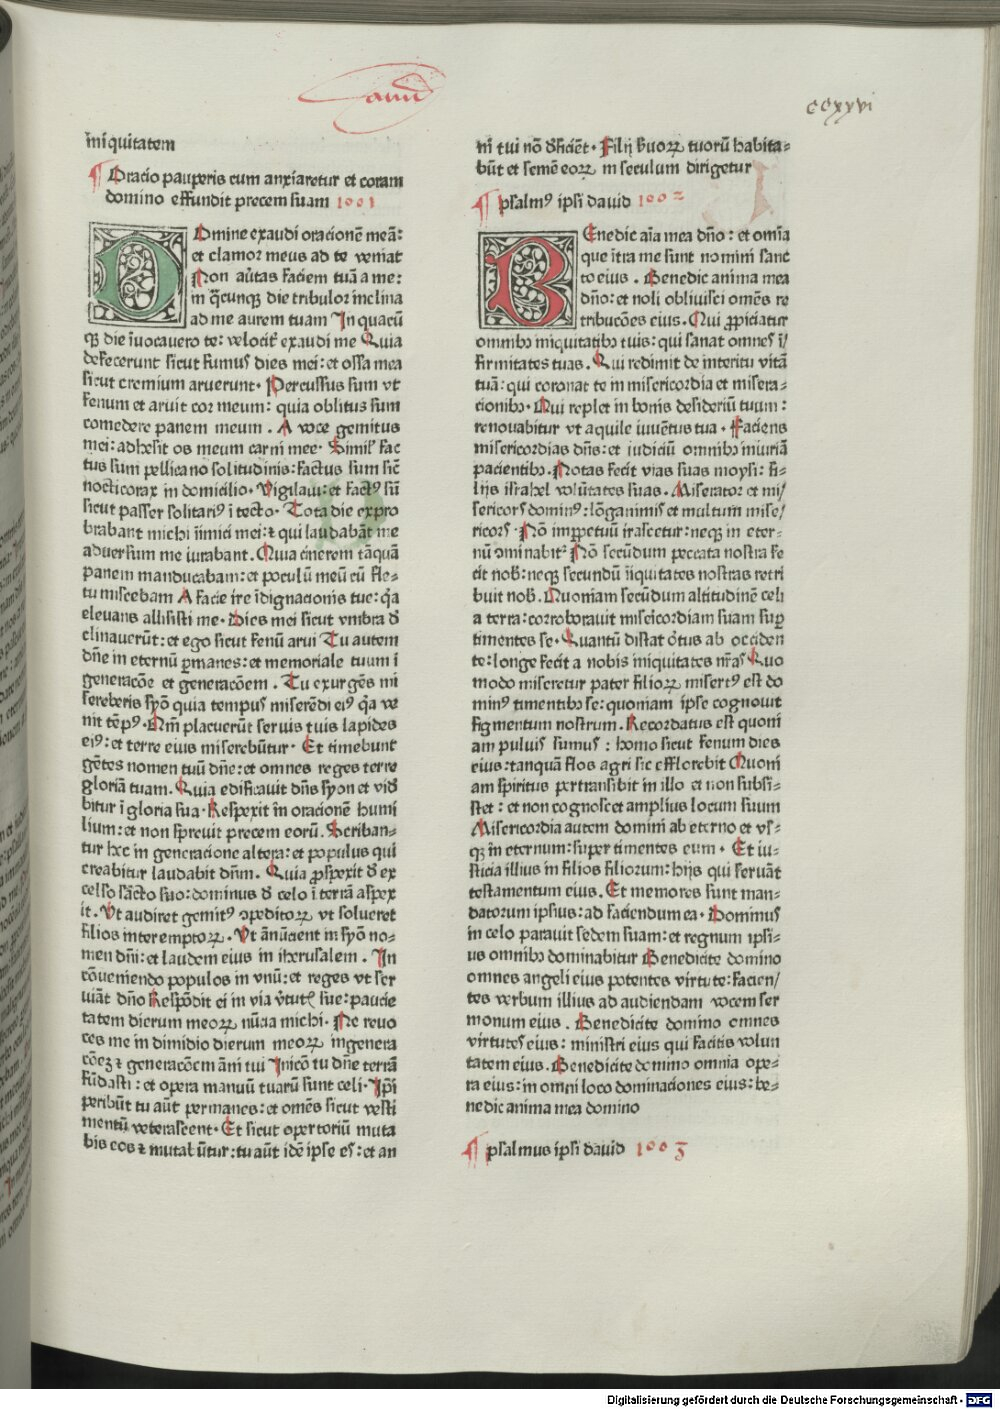 Dauid
ccxxvi
iniquitatem
Oracio pauperis cum anxiaretur et coram
domino effundit precem suam 1001
Domine exaudi oracionē meā:
et clamor meus ad te veniat
Non auertas faciem tuā a me:
in q̄cunqꝫ die tribulor inclina
ad me aurem tuam In quacū
qꝫ die īuocauero te: velocit̄ exaudi me Quia
defecerunt sicut fumus dies mei: et ossa mea
sicut cremium aruerunt. Percussus sum vt
fenum et aruit cor meum: quia oblitus sum
comedere panem meum. A voce gemitus
mei: adhesit os meum carni mee. Simil' fac
tus sum pellicano solitudinis: factus sum sic̄
nocticorax in domicilio. Vigilaui: et factꝰ sū
sicut passer solitariꝰ ī tecto. Tota die expro
brabant michi īimici mei: ⁊ qui laudabāt me
aduersum me iurabant. Quia cinerem tāquā
panem manducabam: et poculū meū cū fle-
tu miscebam A facie ire īdignacionis tue: q̄a
eleuans allisisti me. Dies mei sicut vmbra d̄
clinauerūt: et ego sicut fenū arui Tu autem
dn̄e in eternū p̄manes: et memoriale tuum ī
generacōe et generacōem. Tu exurgēs mi
sereberis syō quia tempus miserēdi eiꝰ q̄a ve
nit tēpꝰ. Qm̄ placuerūt seruis tuis lapides
eiꝰ: et terre eius miserebūtur. Et timebunt
gētes nomen tuū dn̄e: et omnes reges terre
gloriā tuam. Quia edificauit dn̄s syon et vid̄
bitur ī gloria sua. Respexit in oracionē humi
lium: et non spreuit precem eorū. Scriban-
tur hec in generacione altera: et populus qui
creabitur laudabit dn̄m. Quia p̱spexit d̄ ex
celso sācto suo: dominus d̄ celo ī terrā aspex
it. Vt audiret gemitꝰ ɔpeditoꝝ vt solueret
filios interemptoꝝ. Vt ānūcient in syō no-
men dn̄i: et laudem eius in iherusalem. In
cōueniendo populos in vnū: et reges vt ser
uiāt dn̄o Respōdit ei in via v̄tutꝭ sue: paucie
tatem dierum meoꝝ nūcia michi. Ne reuo
ces me in dimidio dierum meoꝝ ingenera
cōeꝫ ⁊ generacōem ām̄ tui Inicō tu dn̄e terrā
fūdasti: et opera manuū tuarū sunt celi. Ip̄i
peribūt tu aūt permanes: et omēs sicut vesti
mentū veterascent. Et sicut opertoriū muta
bis eos ⁊ mutab̄ūtur: tu aūt idē ipse es: et an
ni tui nō d̄ficiēt. Filij s̄uoꝝ tuorū habita-
būt et semē eoꝝ in seculum dirigetur
psalmꝰ ipsi dauid 1002
BEnedic aīa mea dn̄o: et om̄ia
que ītra me sunt nomini sanc
to eius. Benedic anima mea
dn̄o: et noli obliuisci omēs re
tribucōes eius. Qui p̱piciatur
omnibꝫ iniquitatibꝫ tuis: qui sanat omnes ī/
firmitates tuas. Qui redimit de interitu vitā
tuā: qui coronat te in misericordia et misera-
cionibꝫ. Qui replet in bonis desideriū tuum:
renouabitur vt aquile iuuētus tua. Faciens
misericordias dn̄s: et iudiciū omnibꝫ iniuriā
pacientibꝫ. Notas fecit vias suas moysi: fi-
lijs israhel volūtates suas. Miserator et mi/
sericors dominꝰ: lōganimis et multum mise/
ricors. Nō imp̱petuū irascetur: neqꝫ in eter-
nū ɔminabitꝰ Nō secūdum peccata nostra fe
cit nob̄: neqꝫ secundū īiquitates nostras retri
buit nob̄. Quoniam secūdum altitudinē celi
a terra: corroborauit misericordiam suam sup̄
timentes se. Quantū distat ōtus ab occiden
te: longe fecit a nobis iniquitates nr̄as Quo
modo miseretur pater filioꝝ misertꝰ est do
minꝰ timentibꝫ se: quoniam ipse cognouit
figmentum nostrum. Recordatus est quoni
am puluis sumus: homo sicut fenum dies
eius: tanquā flos agri sic efflorebit Quoni
am spiritus pertransibit in illo et non subsi-
stet: et non cognoscet amplius locum suum
Misericordia autem domini ab eterno et vs-
qꝫ in eternum: super timentes eum. Et iu-
sticia illius in filios filiorum: hijs qui seruāt
testamentum eius. Et memores sunt man-
datorum ipsius: ad faciendum ea. Dominus
in celo parauit sedem suam: et regnum ipsi-
us omnibꝫ dominabitur Benedicite domino
omnes angeli eius potentes virtute: facien-
tes verbum illius ad audiendam vocem ser
monum eius. Benedicite domino omnes
virtutes eius: ministri eius qui facitis volun
tatem eius. Benedicite domino omnia ope-
ra eius: in omni loco dominaciones eius: be-
nedic anima mea domino
psalmus ipsi dauid 1003
Digitalisierung gefördert durch die Deutsche Forschungsgemeinschaft - DFG